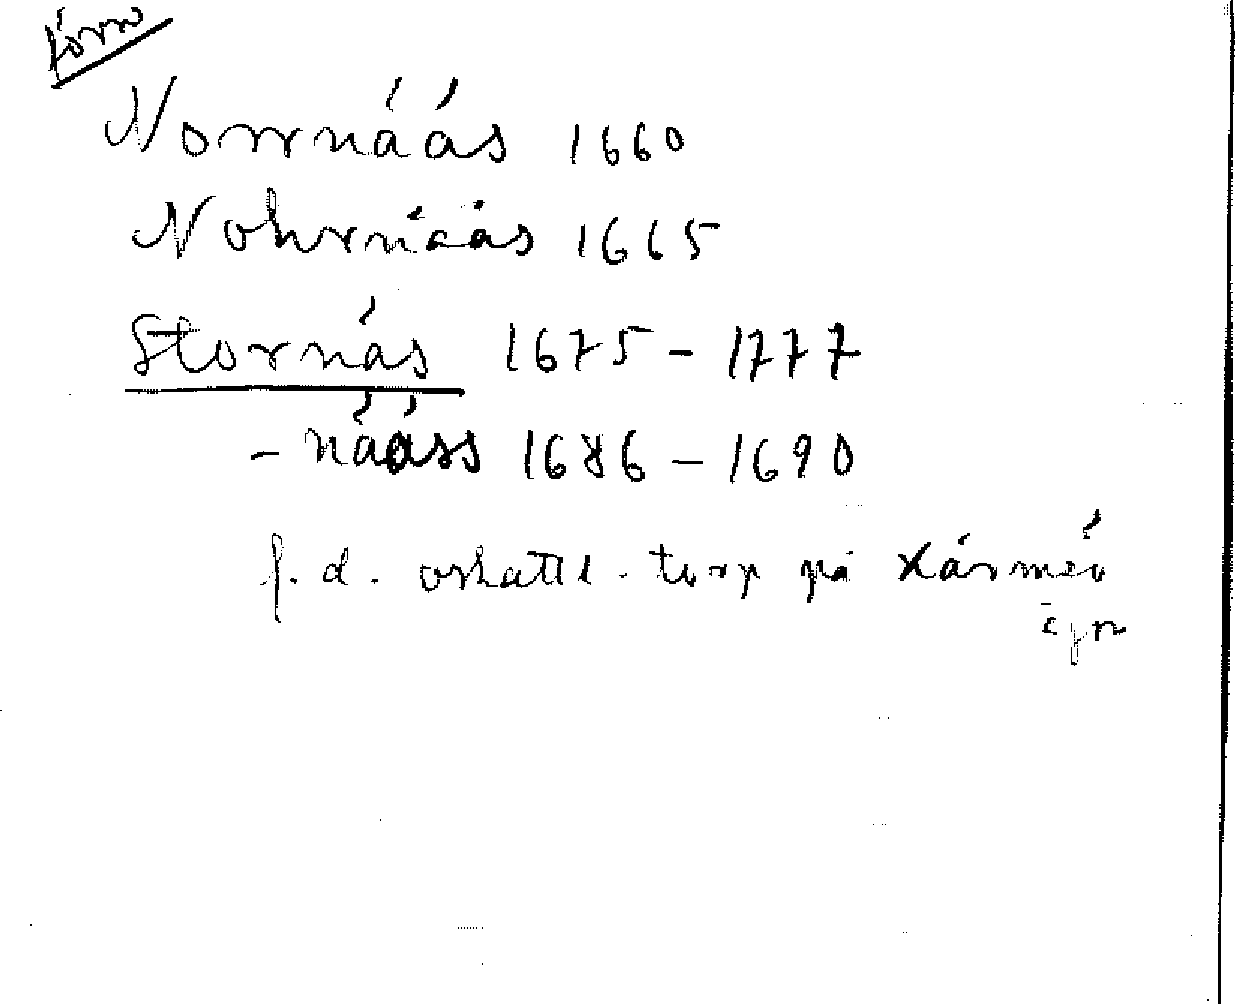 Norrnáás 1660
Nohrnáás 1665
Stornás 1675 - 1777
- nááss 1686 - 1690
f. d. oskattl. torp på